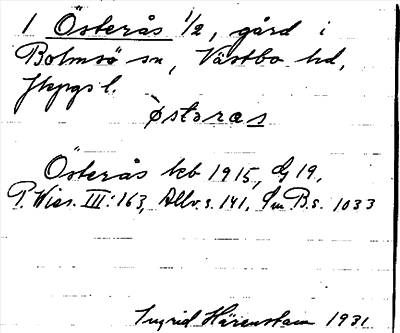 1 Österås 1/2, gård i
Bolmsö sn, Västbo hd,
Jkpgs l.
østəras
Österås kb 1915, G 19,
P. Wies. III: 163, Allv. s. 141, Sm B s. 1033
Ingrid Härenstam 1931